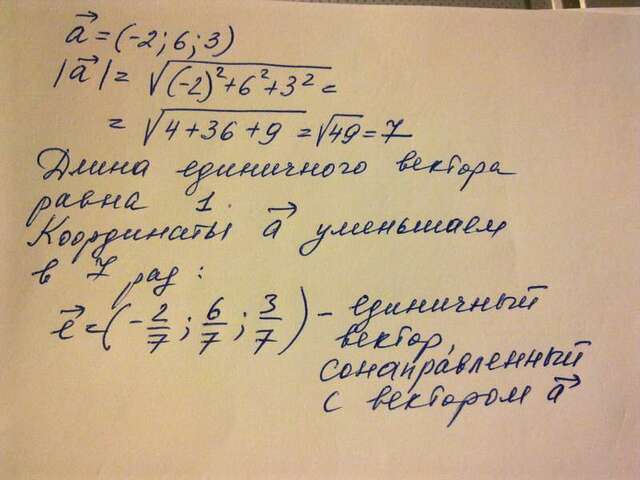 a⃗ = (-2; 6; 3)
|a⃗| = √((-2)² + 6² + 3²) =
= √(4 + 36 + 9) = √49 = 7
Длина единичного вектора
равна 1.
Координаты a⃗ уменьшаем
в 7 раз:
e⃗ = (-2/7; 6/7; 3/7) – единичный
вектор,
сонаправленный
с вектором a⃗